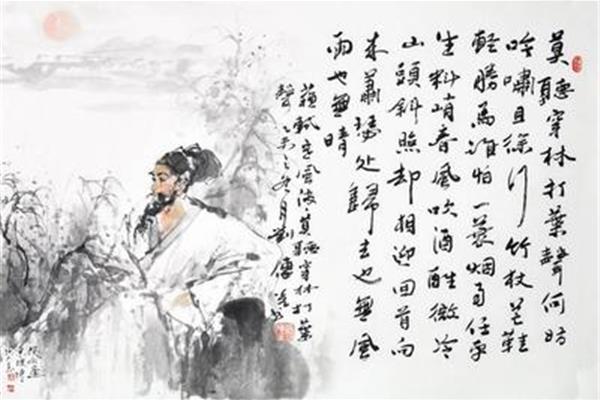 莫聽穿林打葉聲何妨
吟嘯且徐行竹杖芒鞋
輕勝馬誰怕一蓑烟雨任平
生料峭春風吹酒醒微冷
山頭斜照却相迎回首向
来蕭瑟处歸去也無風
雨也無晴
蘇軾定風波莫聽穿林打葉
聲乙未之冬月劉傅